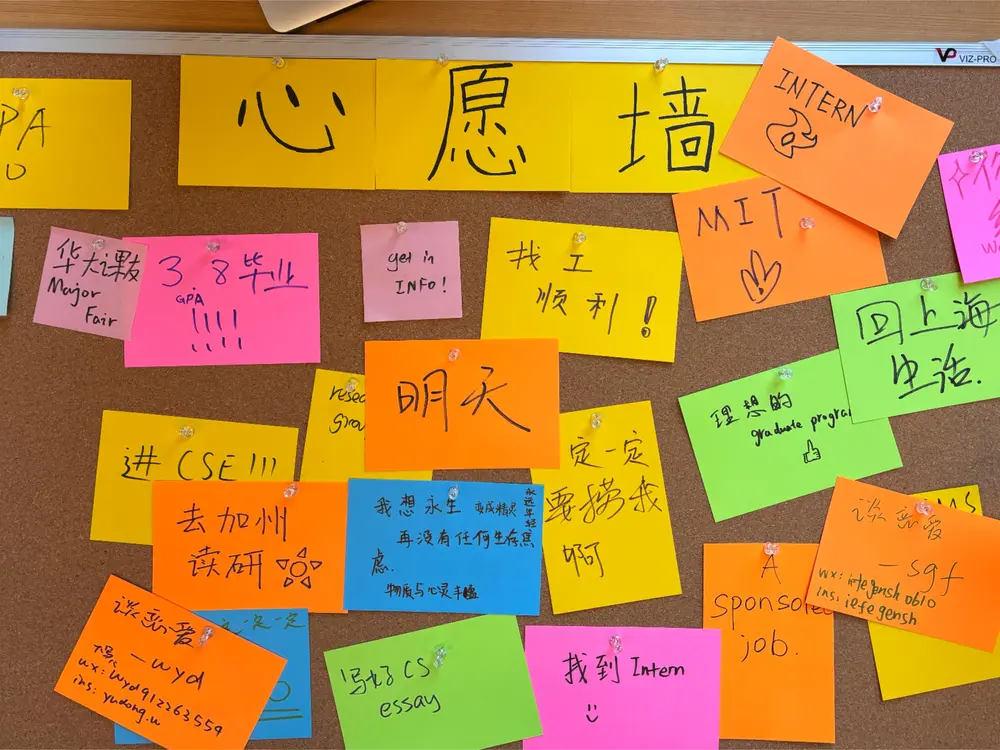 VIZ-PRO
心愿墙
INTERN
PA
MIT
华大课友
Major
Fair
3.8毕业
GPA
!!!!
get in
INFO!
找工
顺利!
回上海
生活.
明天
理想的
graduate program
进CSE!!!
定一定
要捞我
啊
去加州
读研
我想永生 变成精灵
永远年轻
再没有任何生存焦
虑.
物质与心灵丰盈
A
sponsored
job.
谈恋爱
—sgf
ins: iefegensh
谈恋爱
—wyd
wx: wyd912263559
ins: yudong.u
一定一定
写好CS
essay
找到Intern